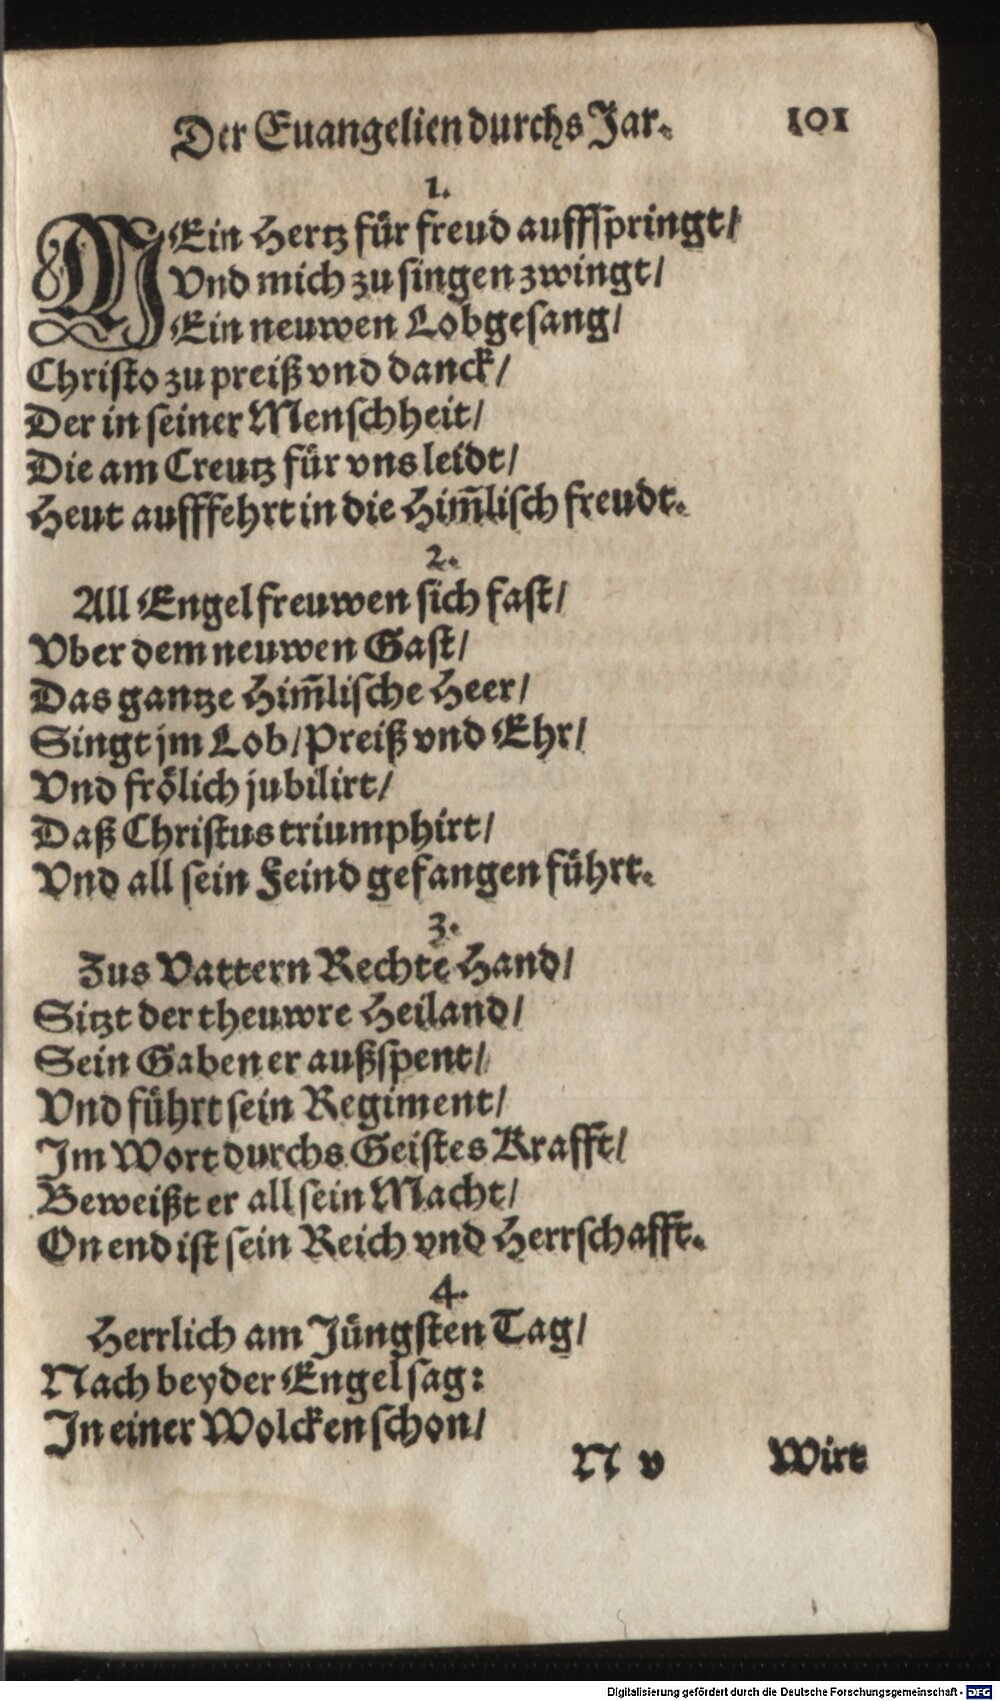 Der Euangelien durchs Jar. 101
1.
MEin Hertz für freud auffspringt/
Vnd mich zu singen zwingt/
Ein neuwen Lobgesang/
Christo zu preiß vnd danck/
Der in seiner Menschheit/
Die am Creutz für vns leidt/
Heut aufffehrt in die Him̃lisch freudt.
2.
All Engel freuwen sich fast/
Vber dem neuwen Gast/
Das gantze Him̃lische Heer/
Singt jm Lob/Preiß vnd Ehr/
Vnd frölich jubilirt/
Daß Christus triumphirt/
Vnd all sein Feind gefangen führt.
3.
Zus Vattern Rechte Hand/
Sitzt der theuwre Heiland/
Sein Gaben er außspent/
Vnd führt sein Regiment/
Im Wort durchs Geistes Krafft/
Beweißt er all sein Macht/
On end ist sein Reich vnd Herrschafft.
4.
Herrlich am Jüngsten Tag/
Nach beyder Engel sag:
In einer Wolcken schon/
N v Wirt
Digitalisierung gefördert durch die Deutsche Forschungsgemeinschaft - DFG